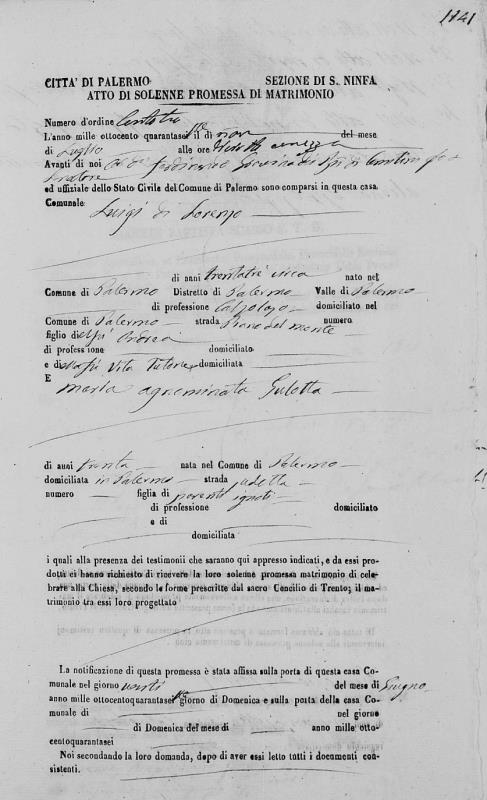 CITTA' DI PALERMO SEZIONE DI S. NINFA
ATTO DI SOLENNE PROMESSA DI MATRIMONIO
Numero d'ordine
L'anno mille ottocento quarantasei il dì nove del mese
di Luglio alle ore
Avanti di noi
ed uffiziale dello Stato Civile del Comune di Palermo sono comparsi in questa casa
Comunale
Luigi di Lorenzo
di anni trentatrè circa nato nel
Comune di Palermo Distretto di Palermo Valle di Palermo
di professione Calzolajo domiciliato nel
Comune di Palermo strada Piano del monte numero
figlio di
di professione domiciliato
e di Vita domiciliata
E
Maria Gulotta
di anni trenta nata nel Comune di Palermo
domiciliata in Palermo strada
numero figlia di parenti ignoti
di professione domiciliato
e di
domiciliata
i quali alla presenza dei testimonii che saranno qui appresso indicati, e da essi pro-
dotti ci hanno richiesto di ricevere la loro solenne promessa matrimonio di cele-
brare alla Chiesa, secondo le forme prescritte dal sacro Concilio di Trento; il ma-
trimonio tra essi loro progettato
La notificazione di questa promessa è stata affissa sulla porta di questa casa Co-
munale nel giorno venti del mese di Giugno
anno mille ottocentoquarantasei giorno di Domenica e sulla porta della casa Co-
munale di nel giorno
di Domenica del mese di anno mille otto-
centoquarantasei
Noi secondando la loro domanda, dopo di aver essi letto tutti i documenti con-
sistenti.